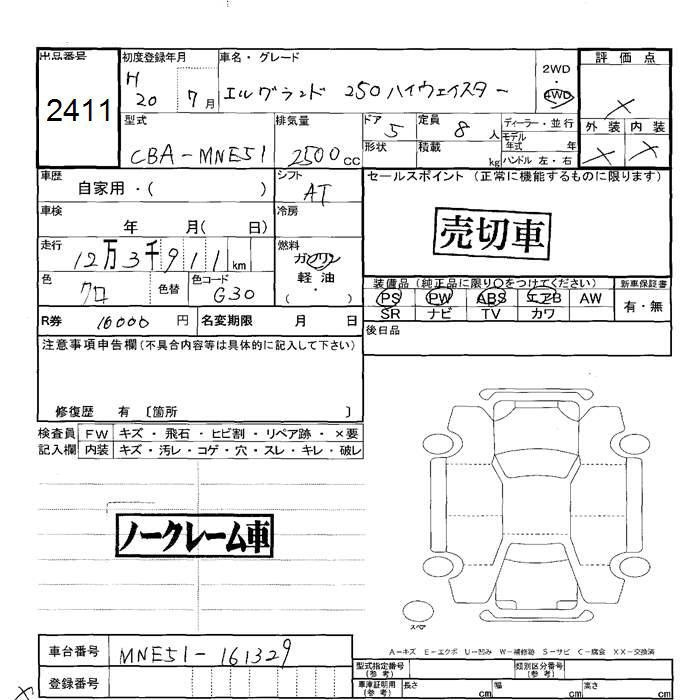 出品番号 初度登録年月 車名・グレード 2WD・4WD 評価点
2411 H20 7月 エルグランド 250ハイウェイスター ×
型式 排気量 ドア 5 定員 8人 ディーラー・並行 外装 内装
CBA-MNE51 2500cc 形状 積載 kg モデル年式 年 × ×
ハンドル 左・右
車歴 自家用・( ) シフト AT セールスポイント(正常に機能するものに限ります)
車検 年 月( 日) 冷房
売切車
走行 12万3千911km 燃料 ガソリン 軽油・( )
色 クロ 色替 色コード G30
装備品(純正品に限り○をつけてください) 新車保証書
PS PW ABS エアB AW 有・無
SR ナビ TV カワ
R券 16000円 名変期限 月 日
後日品
注意事項申告欄(不具合内容等は具体的に記入して下さい)
修復歴 有 〔箇所 〕
検査員 FW キズ・飛石・ヒビ割・リペア跡・×要
記入欄 内装 キズ・汚レ・コゲ・穴・スレ・キレ・破レ
ノークレーム車
スペア
A-キズ E-エクボ U-凹み W-補修跡 S-サビ C-腐食 XX-交換済
車台番号 MNE51-161329
型式指定番号(参考) 類別区分番号(参考)
登録番号
車庫証明用(参考) 長さ cm 幅 cm 高さ cm
×